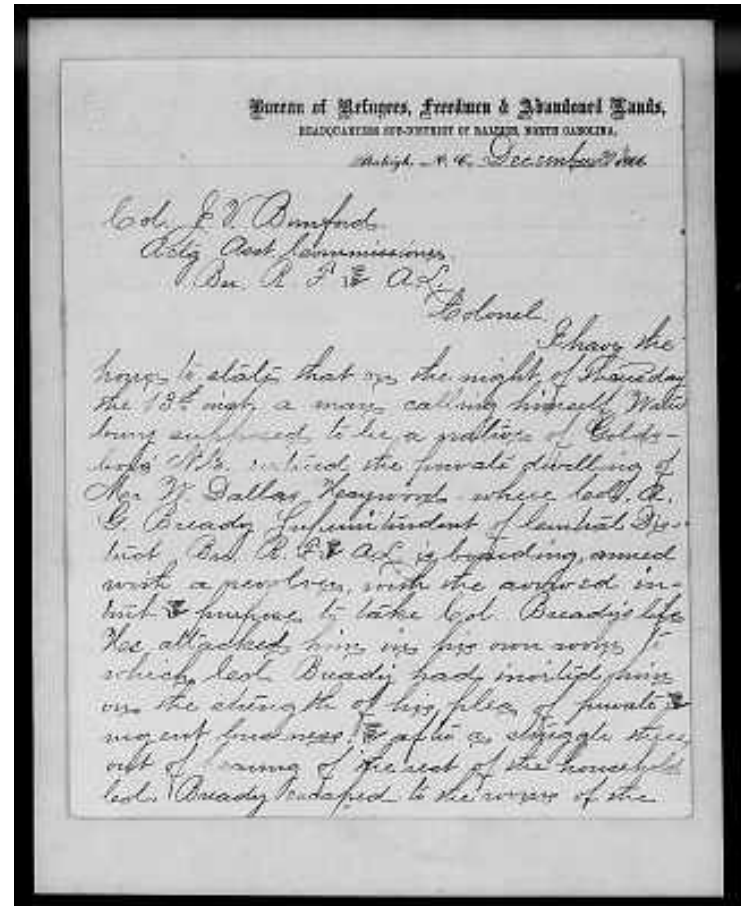 Bureau of Refugees, Freedmen & Abandoned Lands,
HEADQUARTERS SUB-DISTRICT OF RALEIGH, NORTH CAROLINA,
Raleigh, N. C. December
Col. J. V. Bomford
Actg Asst Commissioner
Bu. R. F. & A. L.
Colonel
I have the
honor to state that on the night of Thursday
the 13th inst, a man calling himself Water
bury supposed to be a native of Golds-
boro N.C. entered the private dwelling of
Mr W. Dallas Haywood where Col. A.
G. Brady Superintendent of Central Dis-
trict Bu. R. F. & A. L. is boarding, armed
with a revolver, with the avowed in-
tent & purpose to take Col. Brady's life
He attacked him in his own room to
which Col. Brady had invited him
on the strength of his plea of private &
urgent business & after a struggle there
out of hearing of the rest of the household
Col. Brady escaped to the rooms of the